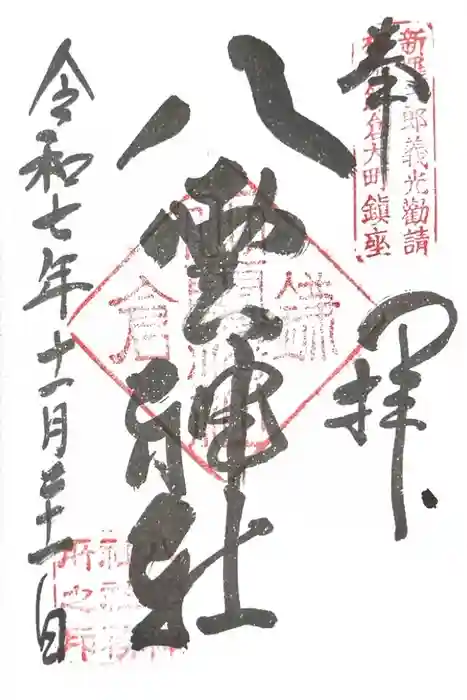 奉拝
新羅三郎義光勧請
相州鎌倉大町鎮座
八雲神社
鎌倉
令和七年十一月二十一日
所之印